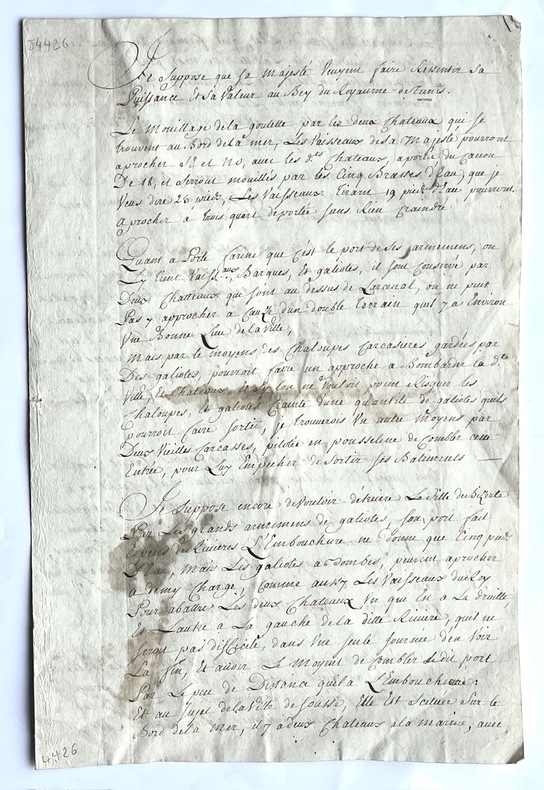 34426
Je Suppose que sa Majesté veuyent faire Ressentir sa
Puissance et sa valeur au Bey du Royaume de Tunis.
Le Mouillage de la goulette par les deux Chateaux qui se
trouvent au Bord de la mer, Les Vaisseaux de sa Majesté pourront
aprocher et no, avec les dts Chateaux, a portée du Canon
De 18, et seront mouillés par les Cinq Brasses d'Eau, que je
Veus dire 25 pieds, Les Vaisseaux tirant 19 pieds d'Eau pouvront
aprocher a trois quart de portée sans Rien Craindre
Quant a Porte farine que c'est le port de ses armemens, ou
Il y tient Vaissaux, Barques, et galiotes, il sont Conservé par
Deux Chatteaux qui sont au dessus de Larcenal, ou ne peut
Pas y approcher a Cauze d'un double Terrain quil y a Environ
Vne Bonne Lieue de la Ville,
Mais par le moyens des Chaloupes Carcasieres gardées par
Des galiotes, pourroit faire un approche a Bombarde la dte
Ville, et Chateaux, et sy lon ne vouloit point Risquer les
Chaloupes, et galiotes Crainte d'une quantité de galiotes quils
pourroit faire sortir, je trouverois Vn autre Moyens par
Deux Vieilles Carcasses, pilotée en pousseline de Combler cette
Entrée, pour Luy Empecher de sortir ses Batiments
Je Suppose encore de Vouloir détruire La Ville de Bizerte
Par Les grands armemens de galiotes, son port fait
en Rivieres L'Embouchure ne donne que Cinq pieds
D'Eau, Mais Les galiotes a Bombes, peuvent aprocher
a demy Charge, Comme aussy Les Vaisseaux du Roy
Pour abattre Les deux Chateaux Vn que En a La droitte
et Lautre a La gauche de la ditte Riviere, quil ne
seroit pas difficile, dans Vne seule Journée d'en Voir
La fin, Et avoir Le Moyent de Combler le dit port
Par Le peu de Distance quil a L'Embouchure;
Et au Sujet de la Ville de Sousse, Elle Est scituée sur le
Bord de la mer, il y a deux Chateaux a la marine, avec
4426